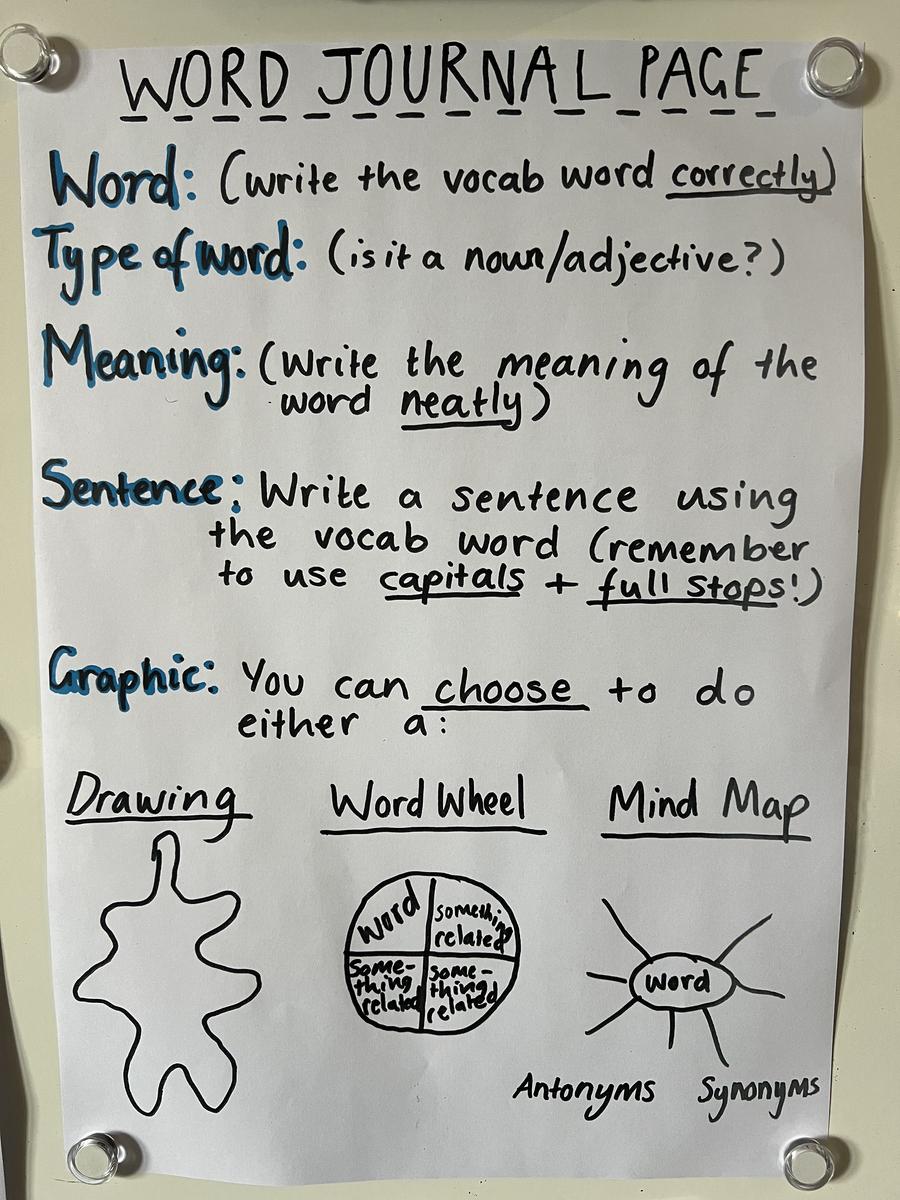 WORD JOURNAL PAGE
Word: (write the vocab word correctly)
Type of word: (is it a noun/adjective?)
Meaning: (Write the meaning of the
word neatly)
Sentence: Write a sentence using
the vocab word (remember
to use capitals + full stops!)
Graphic: You can choose to do
either a:
Drawing
Word Wheel
Mind Map
word
something
related
some-
thing
related
some-
thing
related
word
Antonyms
Synonyms